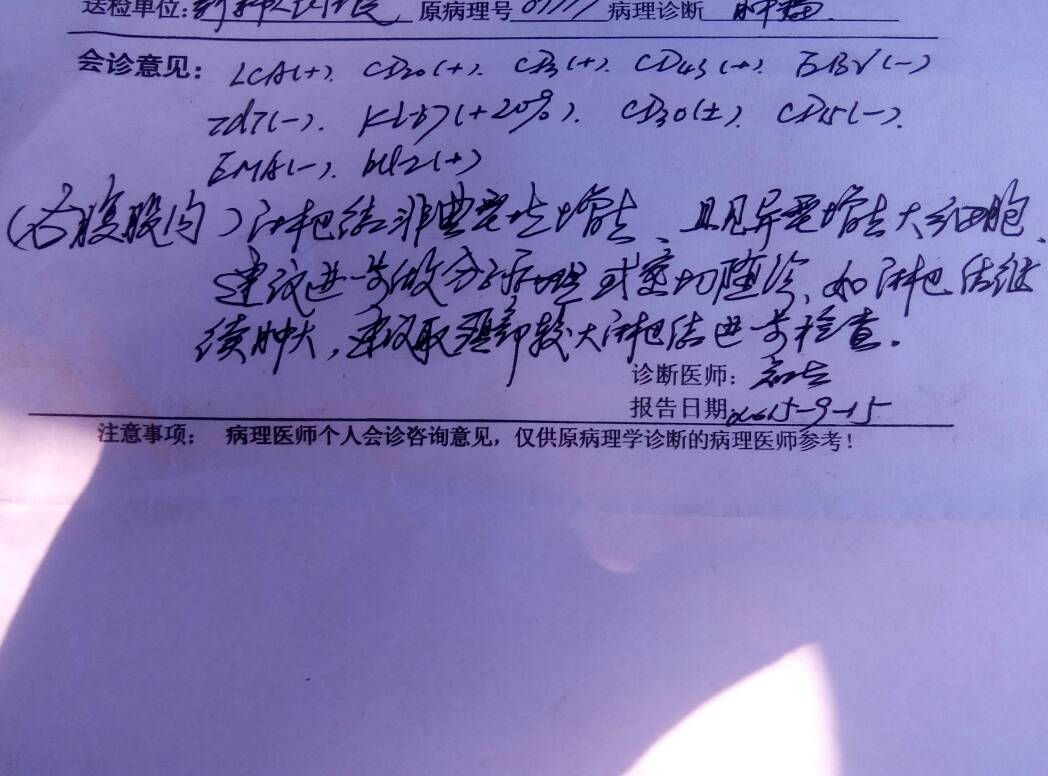 送检单位: 原病理号 病理诊断 肿瘤
会诊意见: LCA(+). CD20(+). CD3(+). CD43(+). EBV(-)
TdT(-). Ki67(+20%). CD30(±). CD15(-).
EMA(-). bcl2(+)
(右腹股沟)淋巴结非典型性增生、且见异型增生大细胞、
建议进一步做分子病理或密切随诊、如淋巴结继
续肿大,建议取颈部较大淋巴结进一步检查。
诊断医师:
报告日期 2015-9-15
注意事项: 病理医师个人会诊咨询意见,仅供原病理学诊断的病理医师参考!